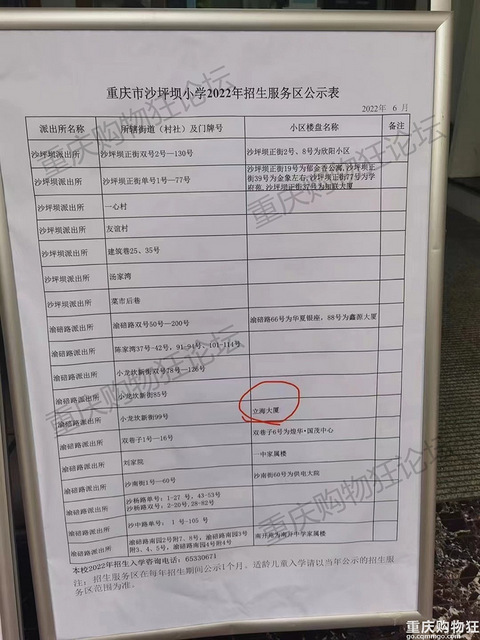 重庆市沙坪坝小学2022年招生服务区公示表
2022年 6 月
派出所名称 所辖街道（村社）及门牌号 小区楼盘名称 备注
沙坪坝派出所 沙坪坝正街双号2号—130号 沙坪坝正街2号、8号为欣阳小区
沙坪坝派出所 沙坪坝正街单号1号—77号 沙坪坝正街19号为郁金香公寓,沙坪坝正
街39号为金象左右,沙坪坝正街77号为学
府苑,沙坪坝正街37号为知联大厦
沙坪坝派出所 一心村
沙坪坝派出所 友谊村
沙坪坝派出所 建筑巷25、35号
沙坪坝派出所 汤家湾
沙坪坝派出所 菜市后巷
渝碚路派出所 渝碚路双号50号—200号 渝碚路66号为华夏银座，88号为鑫源大厦
渝碚路派出所 陈家湾37号-42号，91-94号、101-114号
渝碚路派出所 小龙坎新街双号78号—126号
渝碚路派出所 小龙坎新街85号
渝碚路派出所 小龙坎新街99号 立海大厦
渝碚路派出所 双巷子1号—16号 双巷子6号为煌华·国茂中心
渝碚路派出所 刘家院 一中家属楼
渝碚路派出所 沙南街1号—60号 沙南街60号为供电大院
渝碚路派出所 沙杨路单号：1-27 号，43-53号
沙杨路双号：2-20号,28-82号
渝碚路派出所 沙中路单号： 1 号-105 号
渝碚路派出所 渝碚路南园2号附7、8号，渝碚路南园3号
附3、4、5号，渝碚路南园4号附4号 为南开中学家属楼
本校2022年招生入学咨询电话：65330671
注：招生服务区在每年招生期间公示1个月。适龄儿童入学请以当年公示的招生服
务区范围为准。
重庆购物狂论坛
重庆购物狂论坛
重庆购物狂论坛
重庆购物狂论坛
重庆购物狂
go.cqmmgo.com